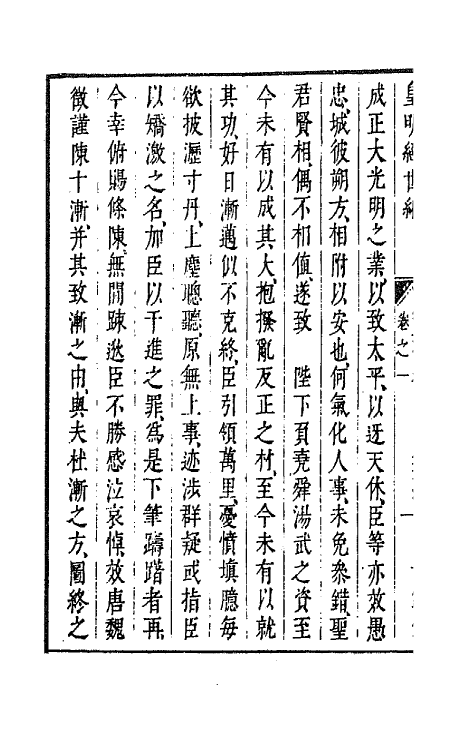 皇明經世編 卷之一
成正大光明之業以致太平以迓天休臣等亦效愚
忠城彼朔方相附以安也何氣化人事未免參錯聖
君賢相偶不相值遂致 陛下負堯舜湯武之資至
今未有以成其大抱撥亂反正之材至今未有以就
其功好日漸邁似不克終臣引領萬里憂憤填臆每
欲披瀝寸丹上塵聰聽原無上事迹涉群疑或指臣
以矯激之名加臣以干進之罪為是下筆躊躇者再
今幸俯賜條陳無間踈逖臣不勝感泣哀悼效唐魏
徵謹陳十漸并其致漸之由與夫杜漸之方圖終之